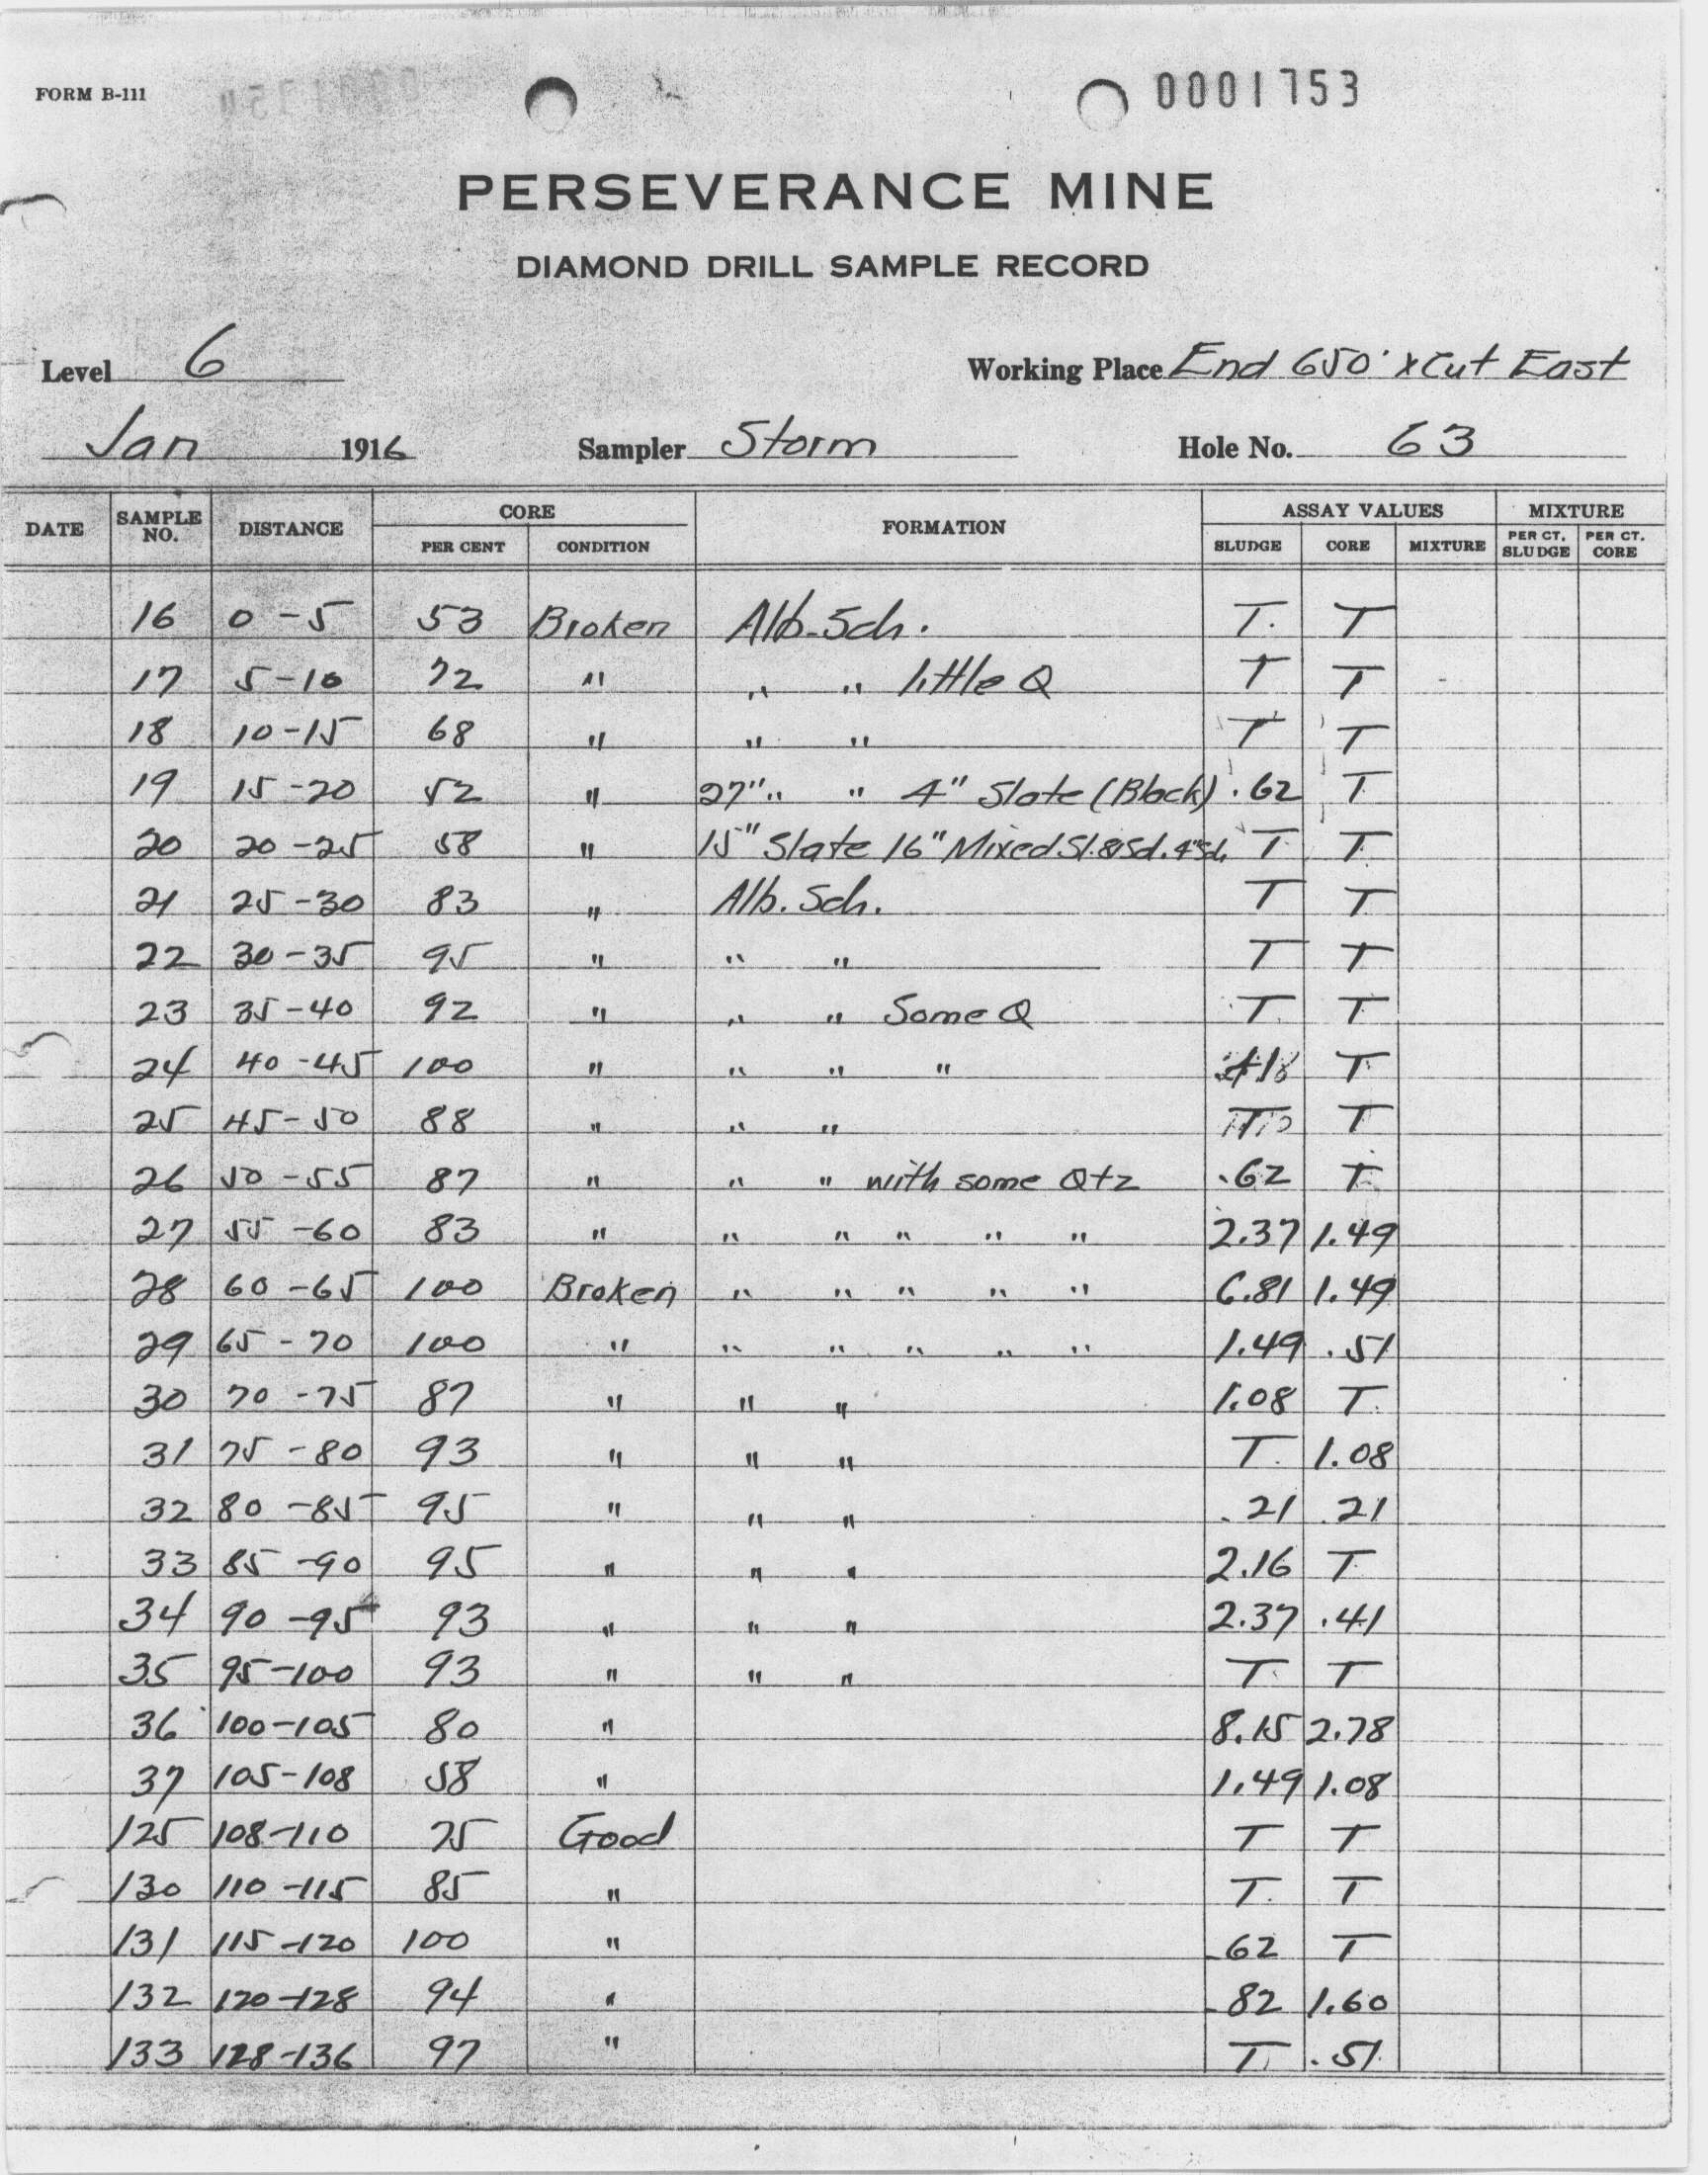 FORM B-111 0001753
PERSEVERANCE MINE
DIAMOND DRILL SAMPLE RECORD
Level 6 Working Place End 650' x Cut East
Jan 1916 Sampler Storm Hole No. 63
DATE SAMPLE NO. DISTANCE CORE FORMATION ASSAY VALUES MIXTURE
PER CENT CONDITION SLUDGE CORE MIXTURE PER CT. SLUDGE PER CT. CORE
16 0-5 53 Broken Alb. Sch. T. T
17 5-10 72 " " " little Q T T
18 10-15 68 " " " T T
19 15-20 52 " 27" " " 4" Slate (Black) .62 T
20 20-25 58 " 15" Slate 16" Mixed Sl. & Sd. 4" Sch T T
21 25-30 83 " Alb. Sch. T T
22 30-35 95 " " " T T
23 35-40 92 " " " Some Q T T
24 40-45 100 " " " " T
25 45-50 88 " " " T
26 50-55 87 " " " with some Qtz .62 T
27 55-60 83 " " " " " " 2.37 1.49
28 60-65 100 Broken " " " " " 6.81 1.49
29 65-70 100 " " " " " " 1.49 .51
30 70-75 87 " " " 1.08 T
31 75-80 93 " " " T 1.08
32 80-85 95 " " " .21 .21
33 85-90 95 " " " 2.16 T
34 90-95 93 " " " 2.37 .41
35 95-100 93 " " " T T
36 100-105 80 " 8.15 2.78
37 105-108 58 " 1.49 1.08
125 108-110 75 Good T T
130 110-115 85 " T. T
131 115-120 100 " .62 T
132 120-128 94 " .82 1.60
133 128-136 97 " T .51